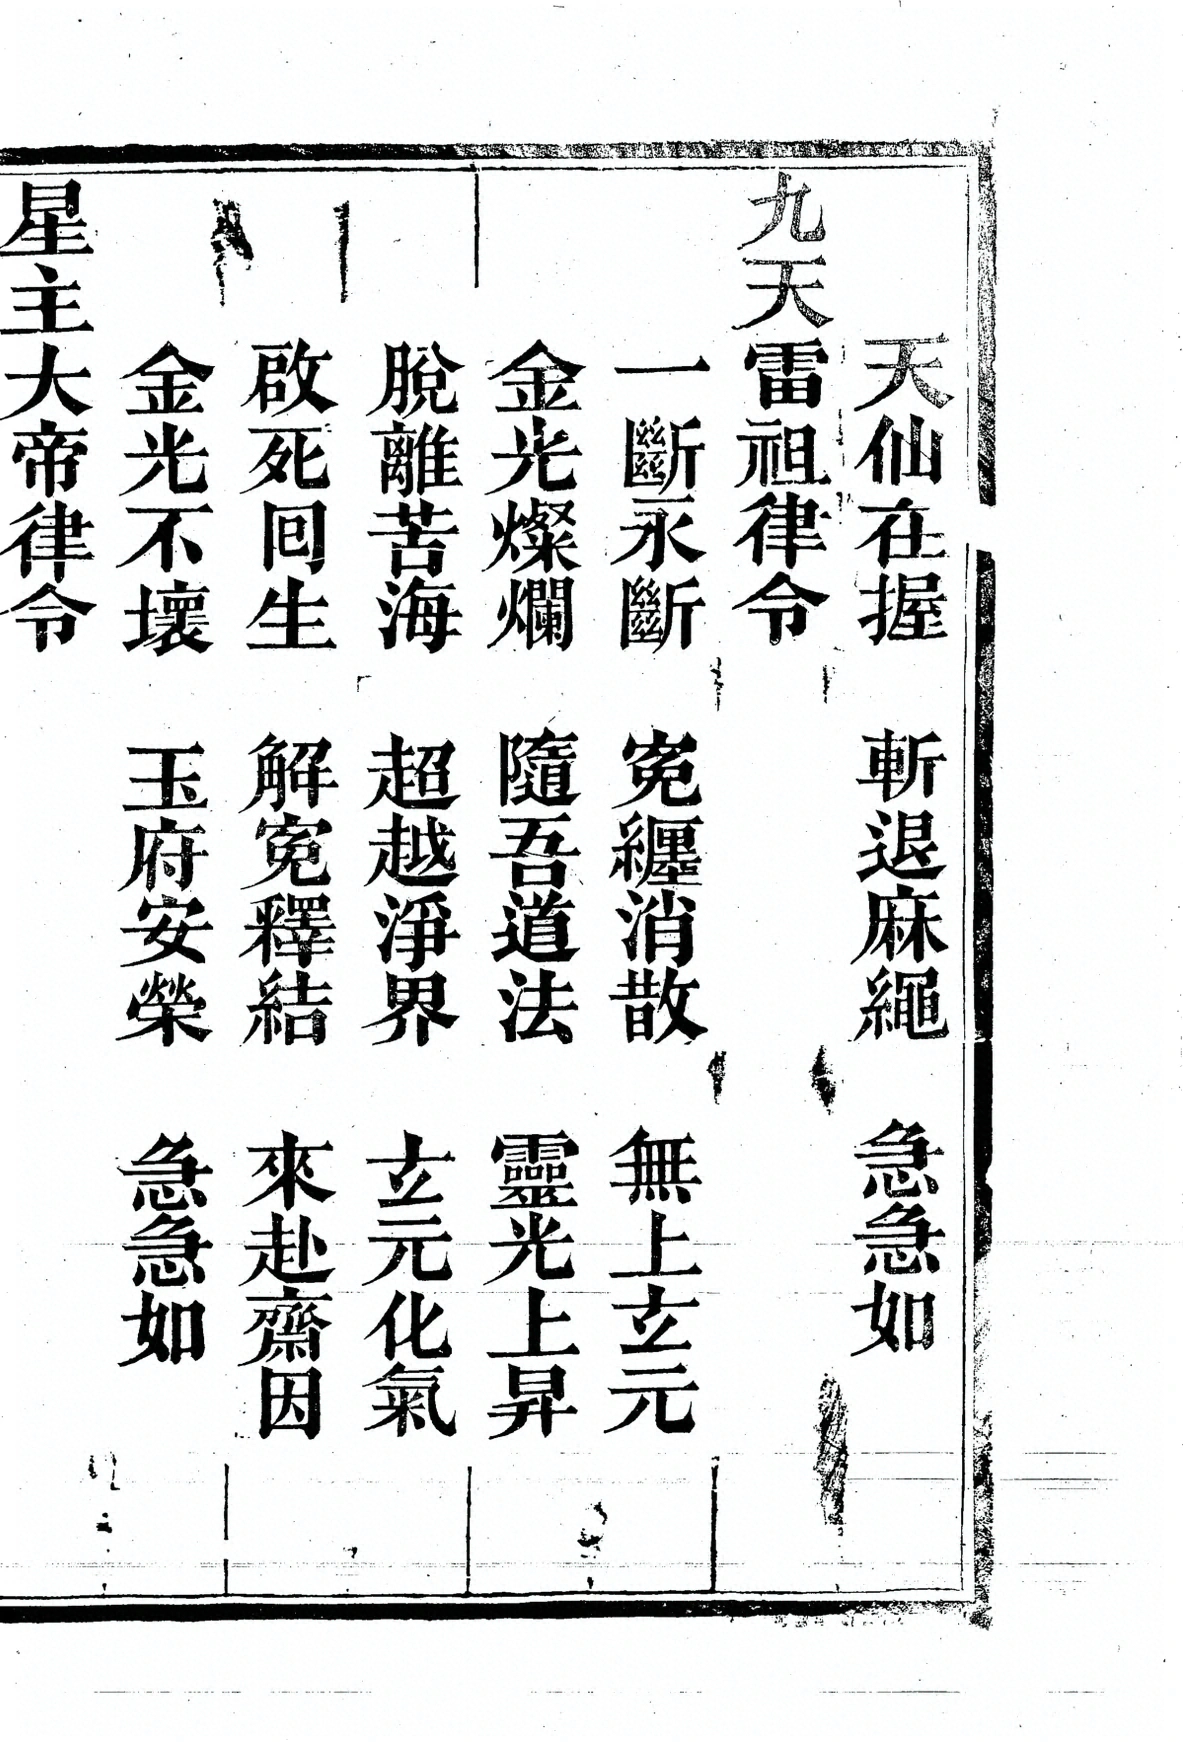 天仙在握　斬退麻繩　急急如
九天雷祖律令
一斷永斷　寃纏消散　無上玄元
金光燦爛　隨吾道法　靈光上昇
脫離苦海　超越淨界　玄元化氣
啟死回生　解寃釋結　來赴齋因
金光不壞　玉府安榮　急急如
星主大帝律令